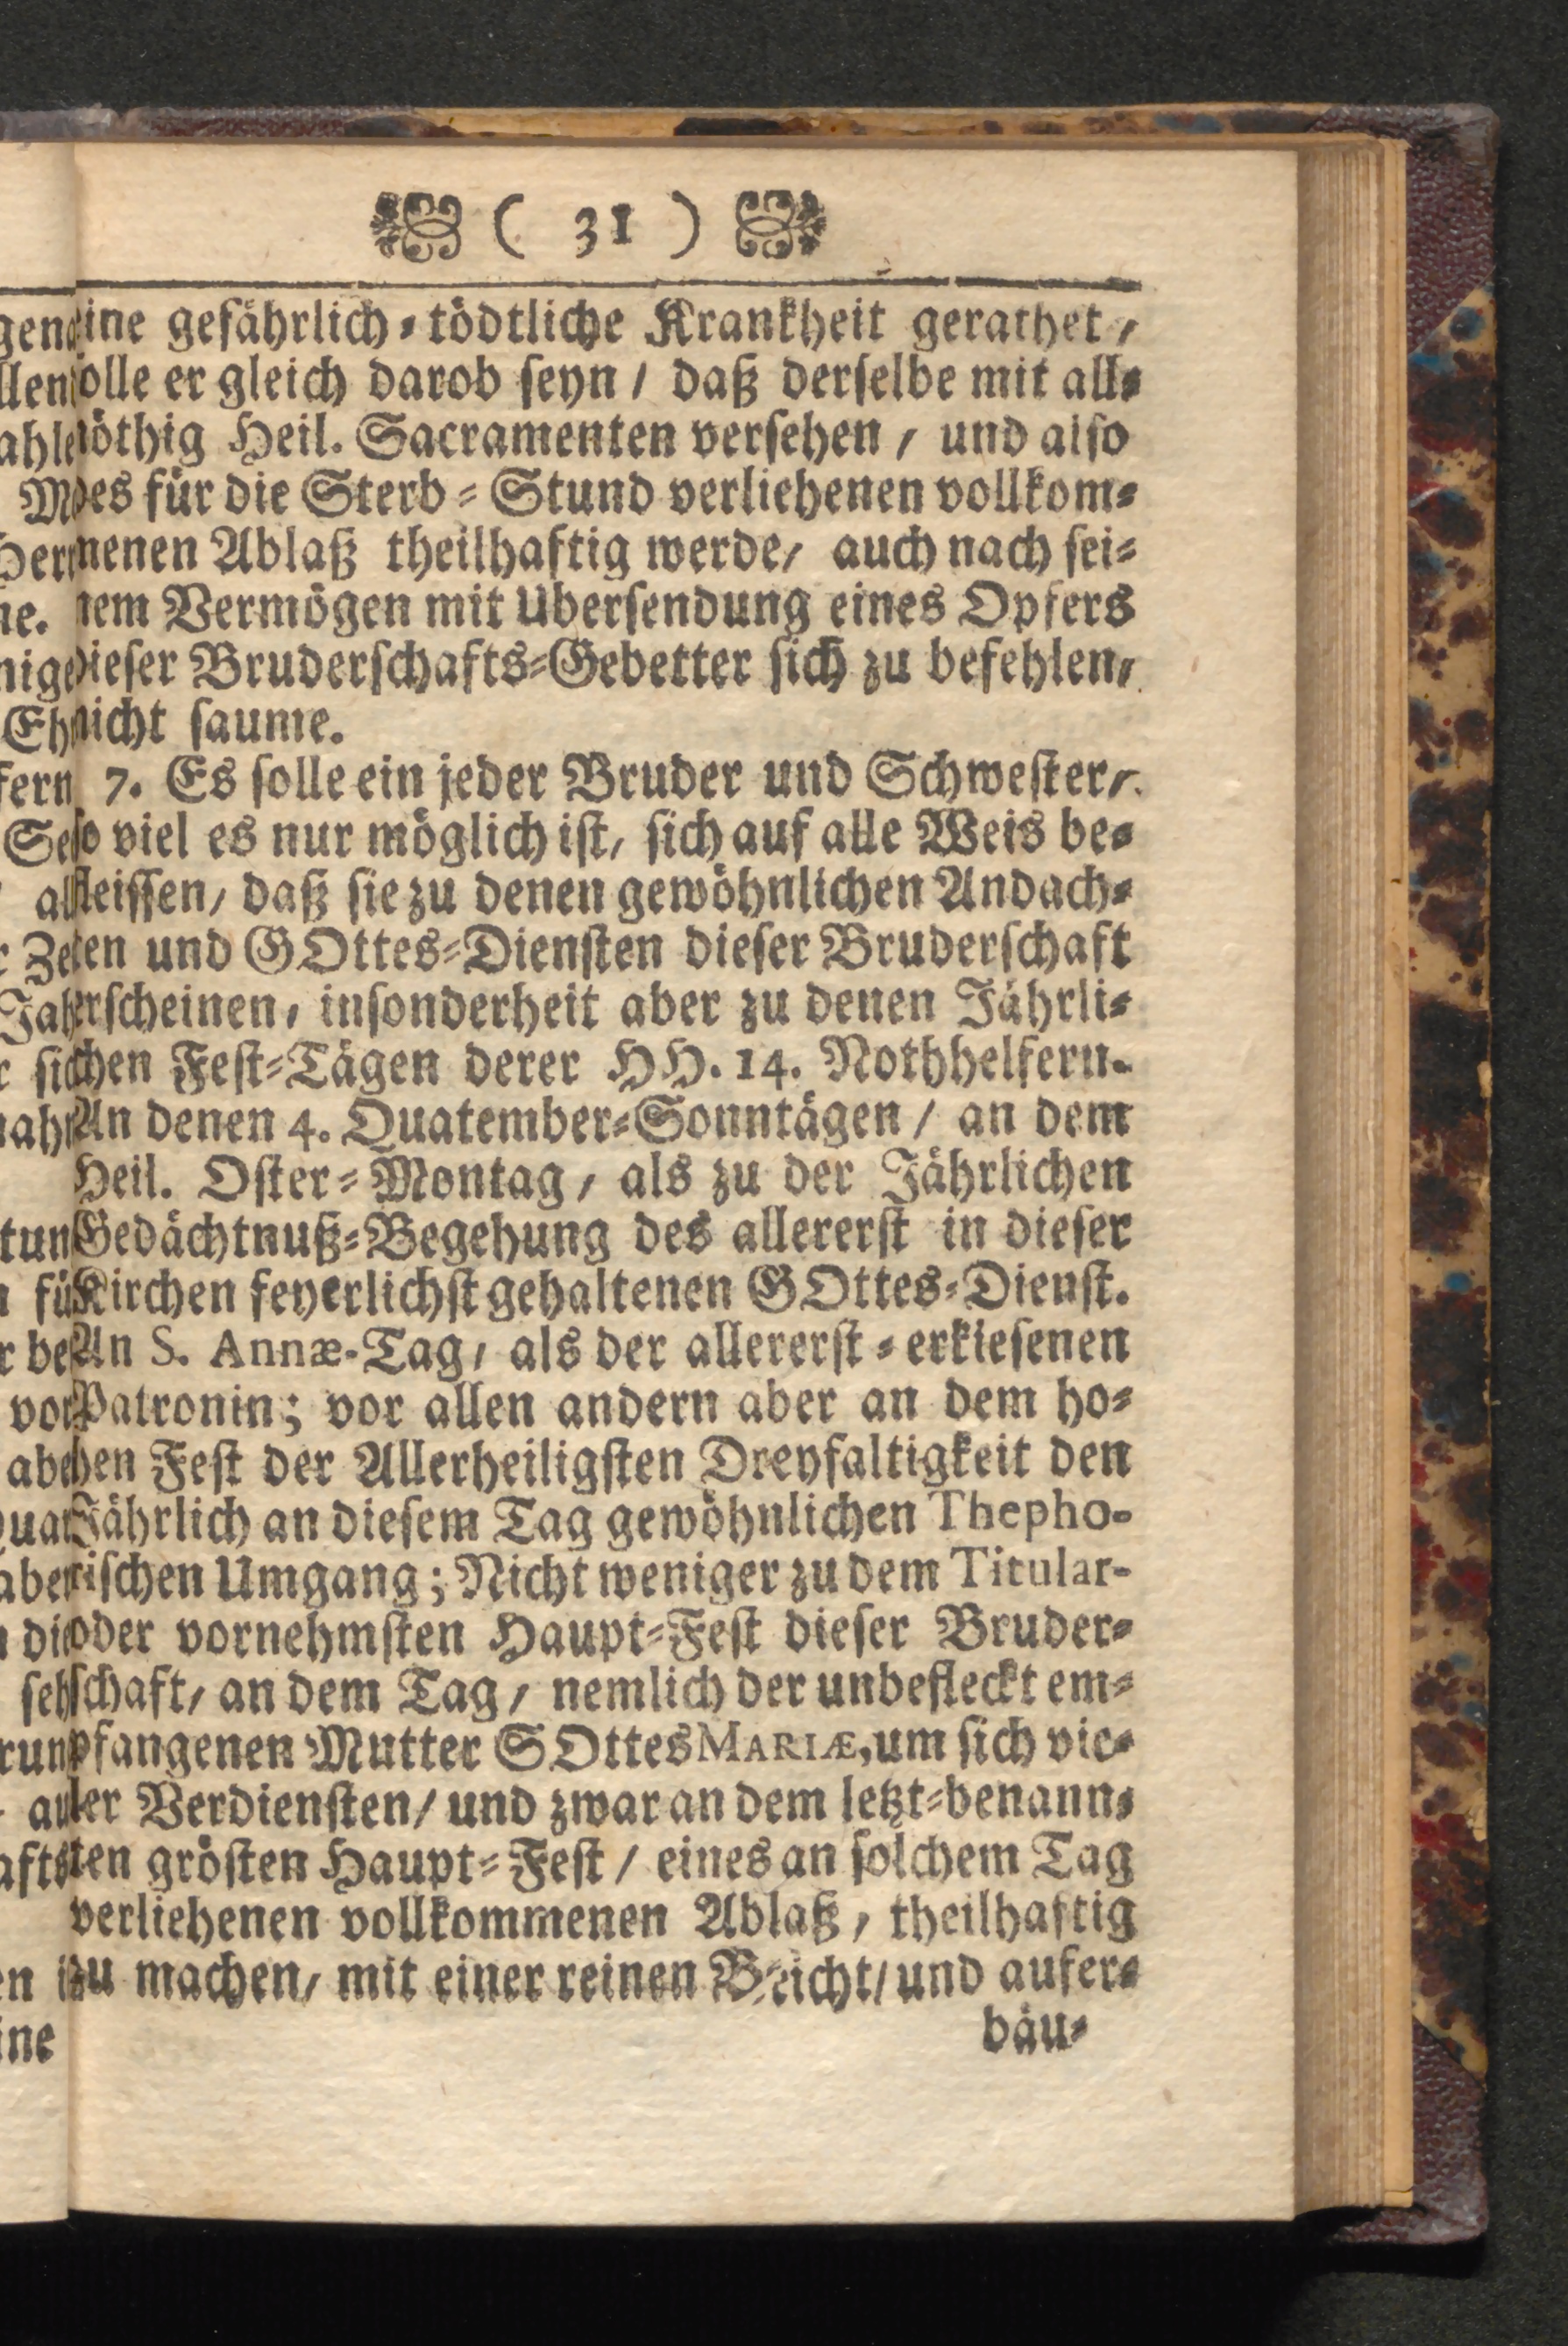 ( 31 )
eine gefährlich-tödtliche Krankheit gerathet,
solle er gleich darob seyn / daß derselbe mit all-
nöthig Heil. Sacramenten versehen, und also
des für die Sterb-Stund verliehenen vollkom-
menen Ablaß theilhaftig werde, auch nach sei-
nem Vermögen mit Ubersendung eines Opfers
dieser Bruderschafts-Gebetter sich zu befehlen,
nicht saume.
7. Es solle ein jeder Bruder und Schwester,
so viel es nur möglich ist, sich auf alle Weis be-
fleissen, daß sie zu denen gewöhnlichen Andach-
ten und GOttes-Diensten dieser Bruderschaft
erscheinen, insonderheit aber zu denen Jährli-
chen Fest-Tägen derer HH. 14. Nothhelfern.
An denen 4. Quatember-Sonntägen / an dem
Heil. Oster-Montag, als zu der Jährlichen
Gedächtnuß-Begehung des allererst in dieser
Kirchen feyerlichst gehaltenen GOttes-Dienst.
An S. Annæ-Tag, als der allererst-erkiesenen
Patronin; vor allen andern aber an dem ho-
hen Fest der Allerheiligsten Dreyfaltigkeit den
Jährlich an diesem Tag gewöhnlichen Thepho-
rischen Umgang; Nicht weniger zu dem Titular-
oder vornehmsten Haupt-Fest dieser Bruder-
schaft, an dem Tag, nemlich der unbefleckt em-
pfangenen Mutter GOttes MARIÆ, um sich vie-
ler Verdiensten / und zwar an dem letzt-benann-
ten grösten Haupt-Fest / eines an solchem Tag
verliehenen vollkommenen Ablaß, theilhaftig
zu machen, mit einer reinen Beicht / und aufer-
bäu-